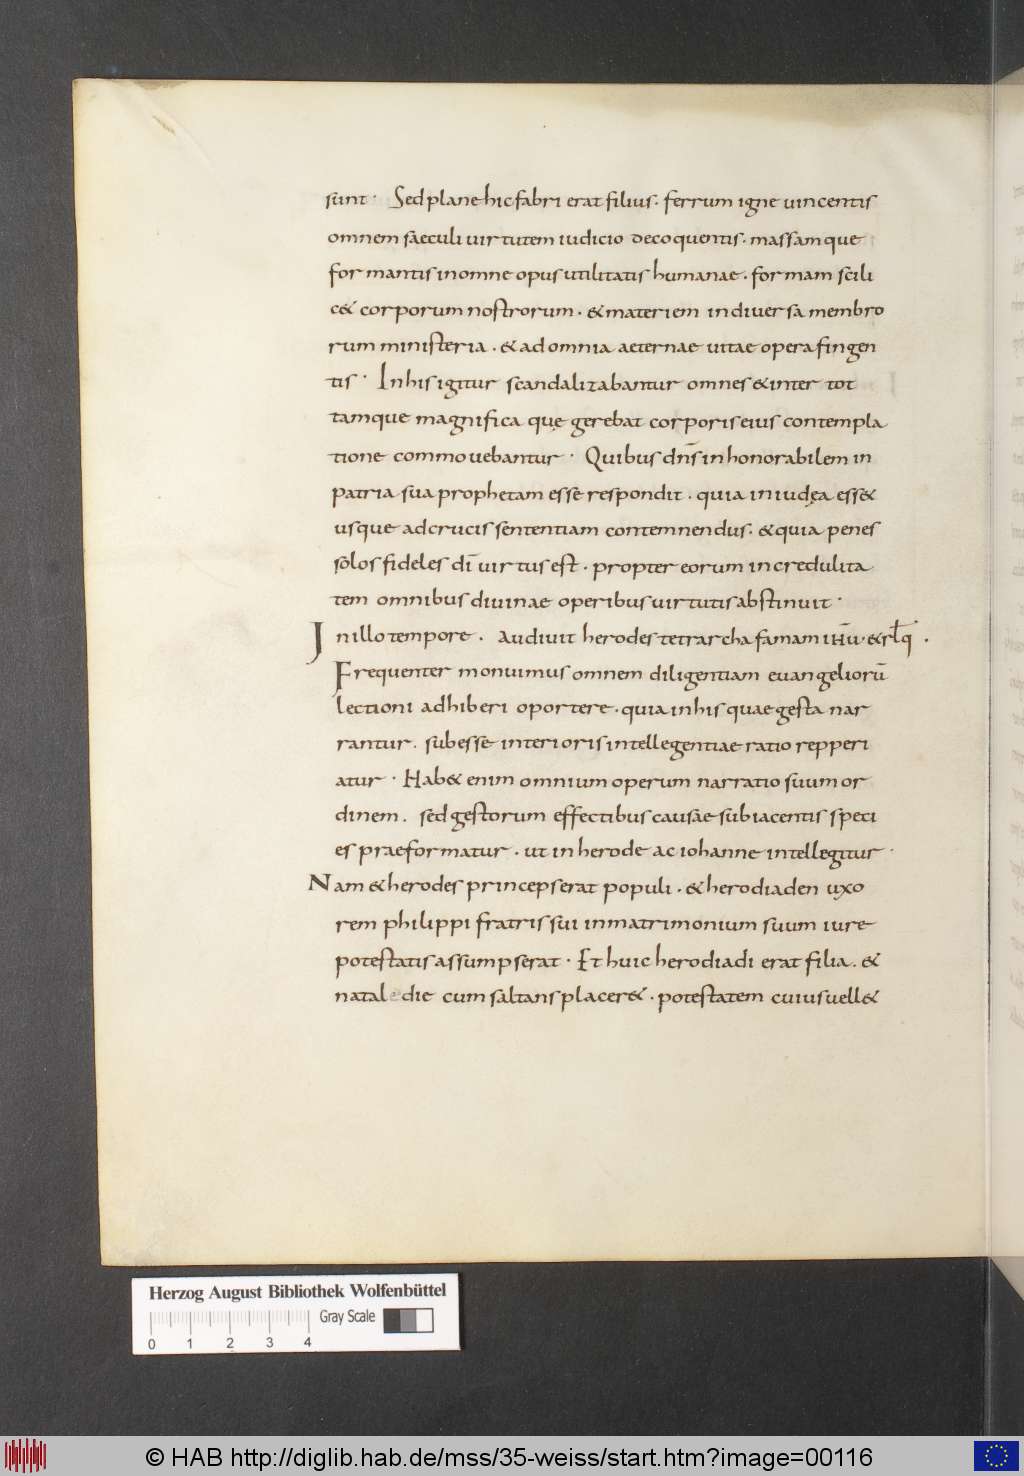 sunt · Sed plane hic fabri erat filius · ferrum igne uincentis
omnem saeculi uirtutem iudicio decoquentis · massamque
formantis in omne opus utilitatis humanae · formam scili
c& corporum nostrorum · & materiem in diuersa membro
rum ministeria · & ad omnia aeternae uitae opera fingen
tis · In his igitur scandalizabantur omnes & inter tot
tamque magnifica quę gerebat corporis eius contempla
tione commouebantur · Quibus dn̄s inhonorabilem in
patria sua prophetam esse respondit · quia in iudęa ess&
usque ad crucis sententiam contemnendus · & quia penes
solos fideles dī uirtus est · propter eorum incredulita
tem omnibus diuinae operibus uirtutis abstinuit ·
In illo tempore · Audiuit herodes tetrarcha famam iHū · & rƚq̄ ·
Frequenter monuimus omnem diligentiam euangeliorū
lectioni adhiberi oportere · quia in his quae gesta nar
rantur · subesse interioris intellegentiae ratio repperi
atur · Hab& enim omnium operum narratio suum or
dinem · sed gestorum effectibus causae subiacentis speci
es praeformatur · ut in herode ac iohanne intellegitur ·
Nam & herodes princeps erat populi · & herodiaden uxo
rem philippi fratris sui in matrimonium suum iure
potestatis assumpserat · Et huic herodiadi erat filia · &
natale die cum saltans placer& · potestatem cuius uell&
Herzog August Bibliothek Wolfenbüttel
Gray Scale
0 1 2 3 4
© HAB http://diglib.hab.de/mss/35-weiss/start.htm?image=00116